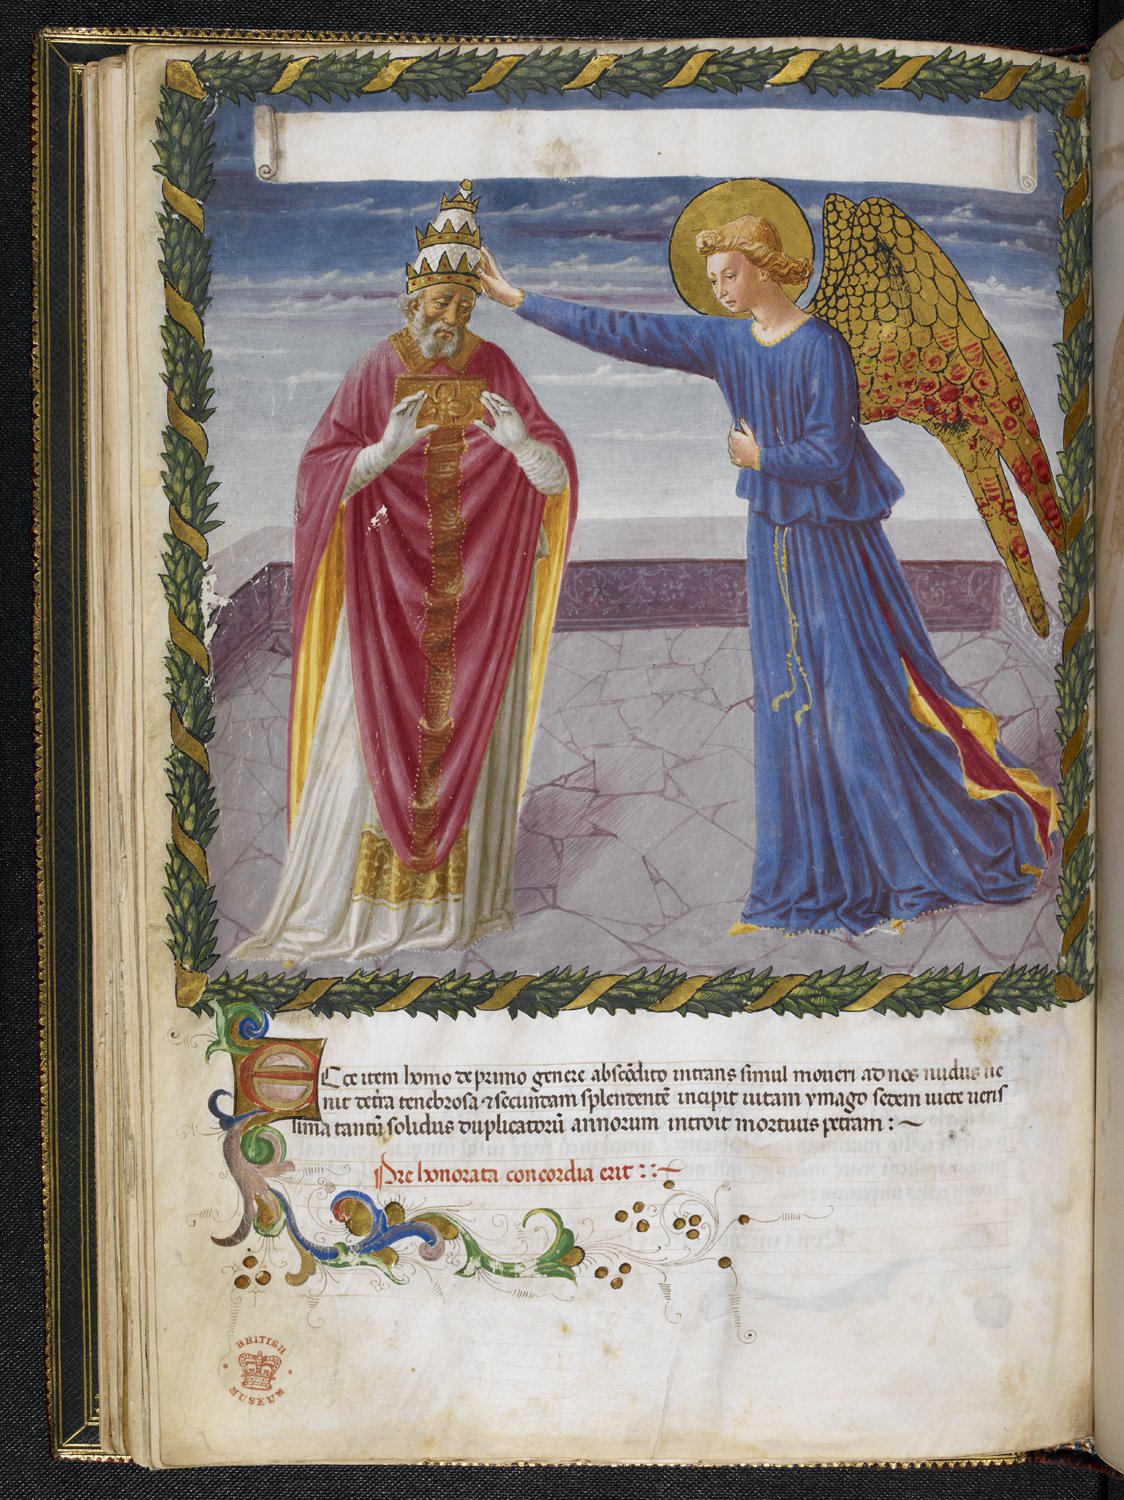 Ecce item homo de primo genere abscōdito intrans simul moneri ad nos nudus ue
nit detr̄a tenebrosa ⁊ secundam splendentē incipit uitam ymago sedem uicte ueris
sima tantū solidus duplicatorū annorum introit mortuus petram : ~
Pre honorata concordia erit : : ~
BRITISH
MUSEUM